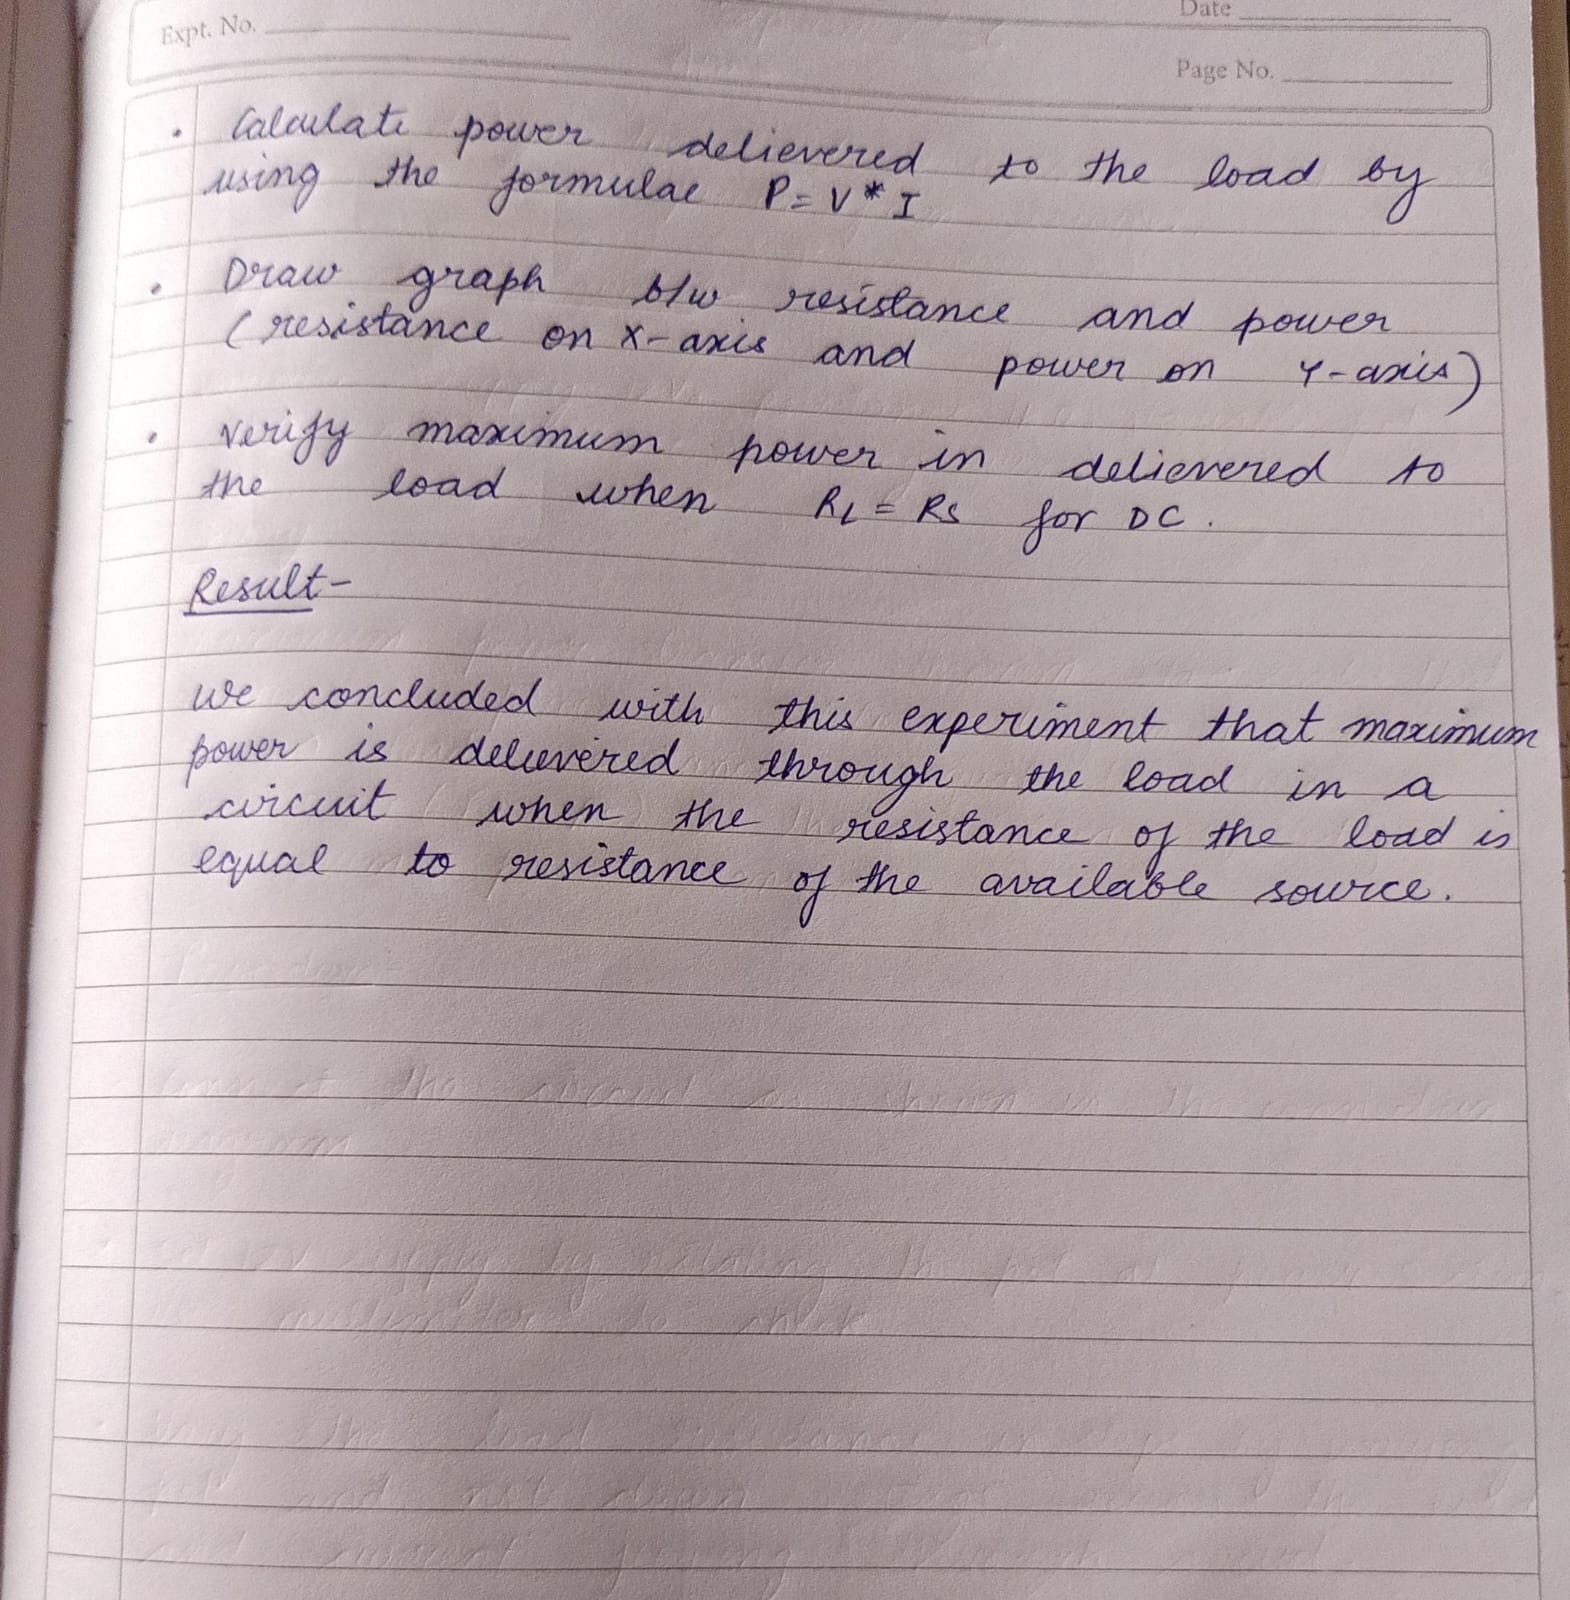 Date
Expt. No.
Page No.
• Calculate power delievered to the load by
using the formulae P = V * I
• Draw graph b/w resistance and power
(resistance on X-axis and power on Y-axis)
• Verify maximum power in delievered to
the load when RL = RS for DC.
Result-
We concluded with this experiment that maximum
power is delievered through the load in a
circuit when the resistance of the load is
equal to resistance of the available source.